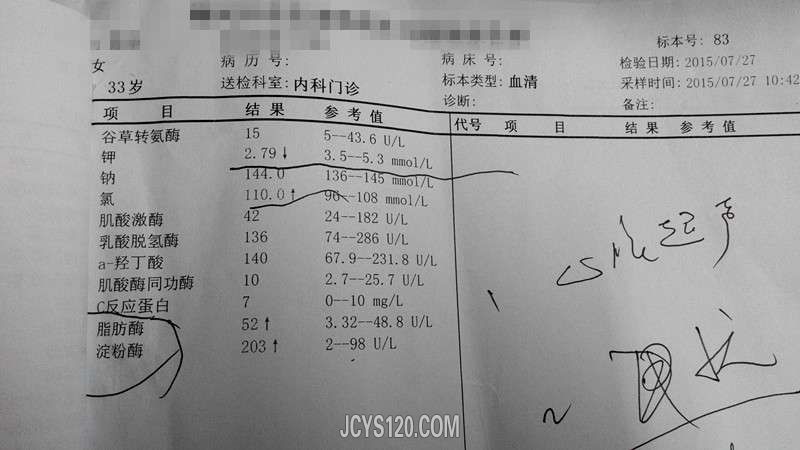 标本号: 83
女 病历号: 病床号: 检验日期: 2015/07/27
33岁 送检科室: 内科门诊 标本类型: 血清 采样时间: 2015/07/27 10:42
诊断: 备注:
项 目 结果 参考值 代号 项 目 结果 参考值
谷草转氨酶 15 5--43.6 U/L
钾 2.79↓ 3.5--5.3 mmol/L
钠 144.0 136--145 mmol/L
氯 110.0↑ 96--108 mmol/L
肌酸激酶 42 24--182 U/L
乳酸脱氢酶 136 74--286 U/L
a-羟丁酸 140 67.9--231.8 U/L
肌酸酶同功酶 10 2.7--25.7 U/L
C反应蛋白 7 0--10 mg/L
脂肪酶 52↑ 3.32--48.8 U/L
淀粉酶 203↑ 2--98 U/L
超声
JCYS120.COM